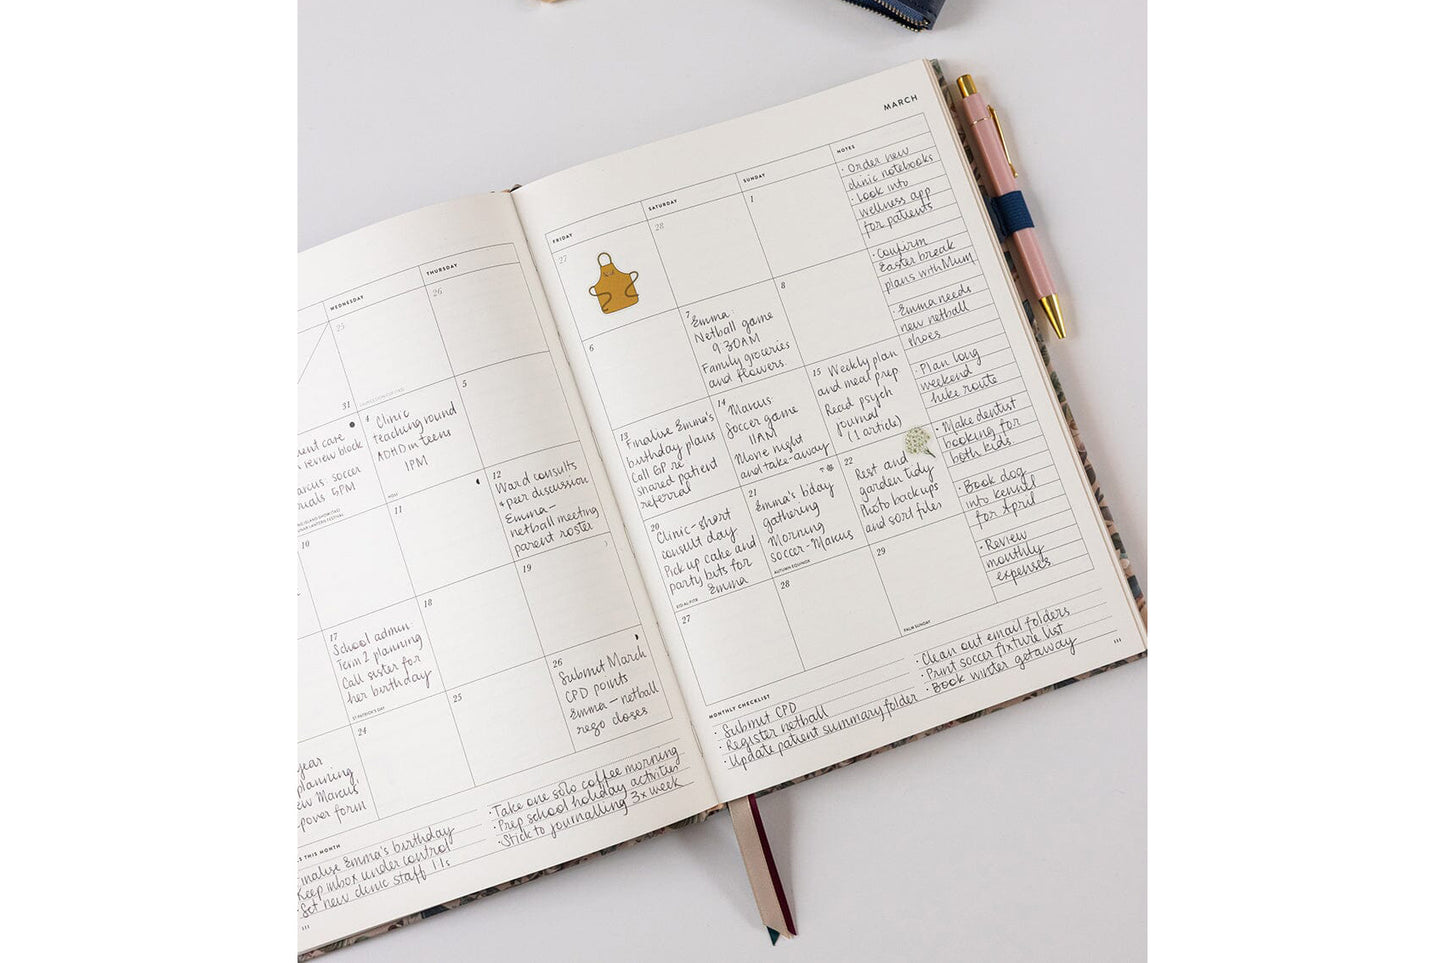 MARCH
WEDNESDAY
THURSDAY
25
26
31
4
Clinic
teaching round
ADHD in teens
1PM
5
ent care
review block
arcus soccer
rials 5PM
HOLI
10
11
12
Ward consults
+ peer discussion
Emma –
netball meeting
parent roster
17
School admin:
Term 2 planning
Call sister for
her birthday
ST PATRICK'S DAY
18
19
24
25
26
Submit March
CPD points
Emma – netball
rego closes
year
planning
ew Marcus'
-power form
S THIS MONTH
inalise Emma's birthday
Keep inbox under control
· Set new clinic staff 1:1s
· Take one solo coffee morning
· Prep school holiday activities
· Stick to journalling 3x week
FRIDAY
SATURDAY
SUNDAY
NOTES
27
28
1
6
7
Emma:
Netball game
9:30AM
Family groceries
and flowers
8
13
Finalise Emma's
birthday plans
Call GP re
shared patient
referral
14
Marcus:
Soccer game
11AM
Movie night
and take-away
15
Weekly plan
and meal prep
Read psych
journal
(1 article)
20
Clinic – short
consult day
Pick up cake and
party bits for
Emma
EID AL-FITR
21
Emma's b'day
gathering
Morning
soccer – Marcus
AUTUMN EQUINOX
22
Rest and
garden tidy
Photo backups
and sort files
27
28
29
PALM SUNDAY
· Order new
clinic notebooks
· Look into
wellness app
for patients
· Confirm
Easter break
plans with Mum
· Emma needs
new netball
shoes
· Plan long
weekend
hike route
· Make dentist
booking for
both kids
· Book dog
into kennel
for April
· Review
monthly
expenses
MONTHLY CHECKLIST
· Submit CPD
· Register netball
· Update patient summary folder
· Clean out email folders
· Print soccer fixture list
· Book winter getaway